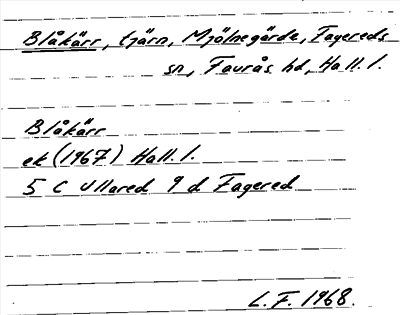 Blåkärr, tjärn, Mjölnegärde, Fagereds
sn, Faurås hd, Hall. l.
Blåkärr
ek (1967) Hall. l.
5 C Ullared 9 d Fagered
L. F. 1968.